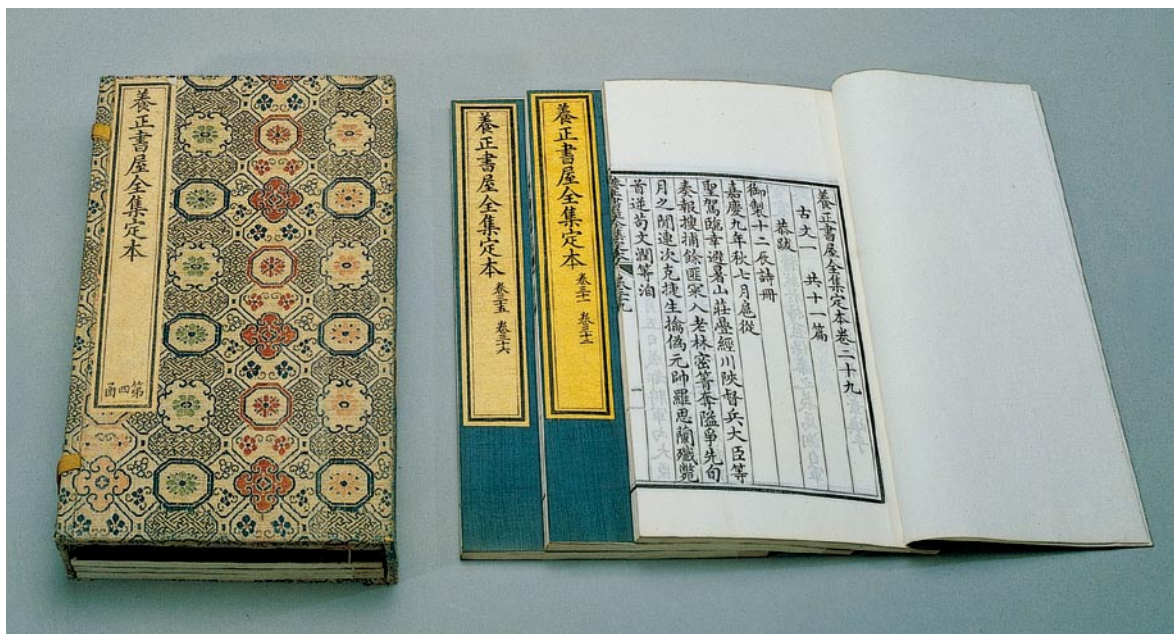 養正書屋全集定本
第四函
養正書屋全集定本 卷三十五 卷三十六
養正書屋全集定本 卷三十一 卷三十二
養正書屋全集定本卷二十九
古文一 共十一篇
恭跋
御製十二辰詩冊
嘉慶九年秋七月扈從
聖駕臨幸避暑山莊疊經川陝督兵大臣等
奏報搜捕餘匪竄入老林密箐奪隘爭先旬
月之閒連次克捷生擒偽元帥羅思蘭殲斃
首逆苟文潤等洎